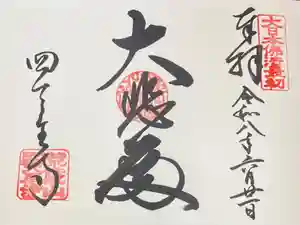 大日本佛法最初
奉拝
令和八年六月廿一日
大悲殿
四天王寺